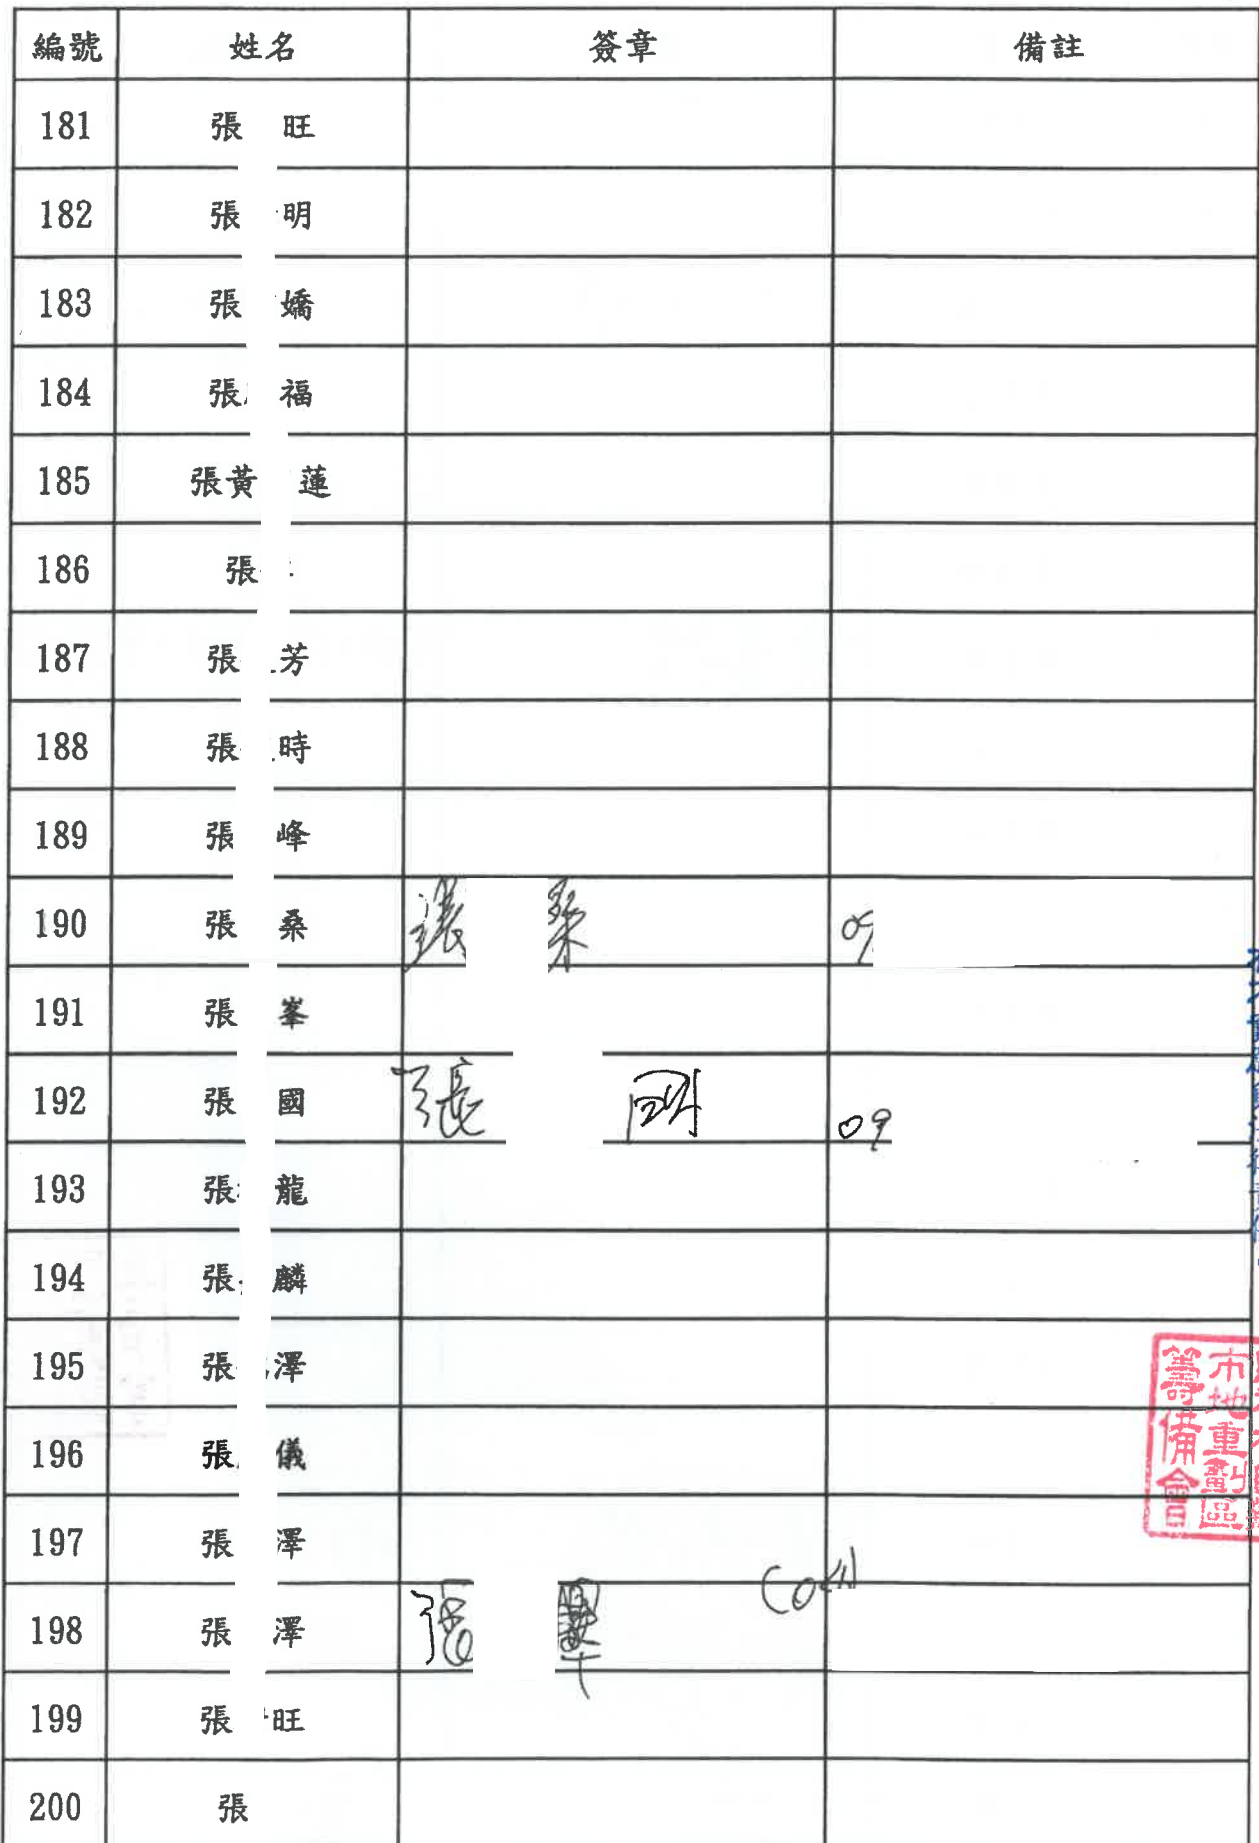 編號 姓名 簽章 備註
181 張 旺
182 張 明
183 張 嬌
184 張 福
185 張黃 蓮
186 張
187 張 芳
188 張 時
189 張 峰
190 張 桑 張 桑 09
191 張 峯
192 張 國 張 國 09
193 張 龍
194 張 麟
195 張 澤
196 張 儀
197 張 澤
198 張 澤 張
199 張 旺
200 張
市地重劃區
籌備會